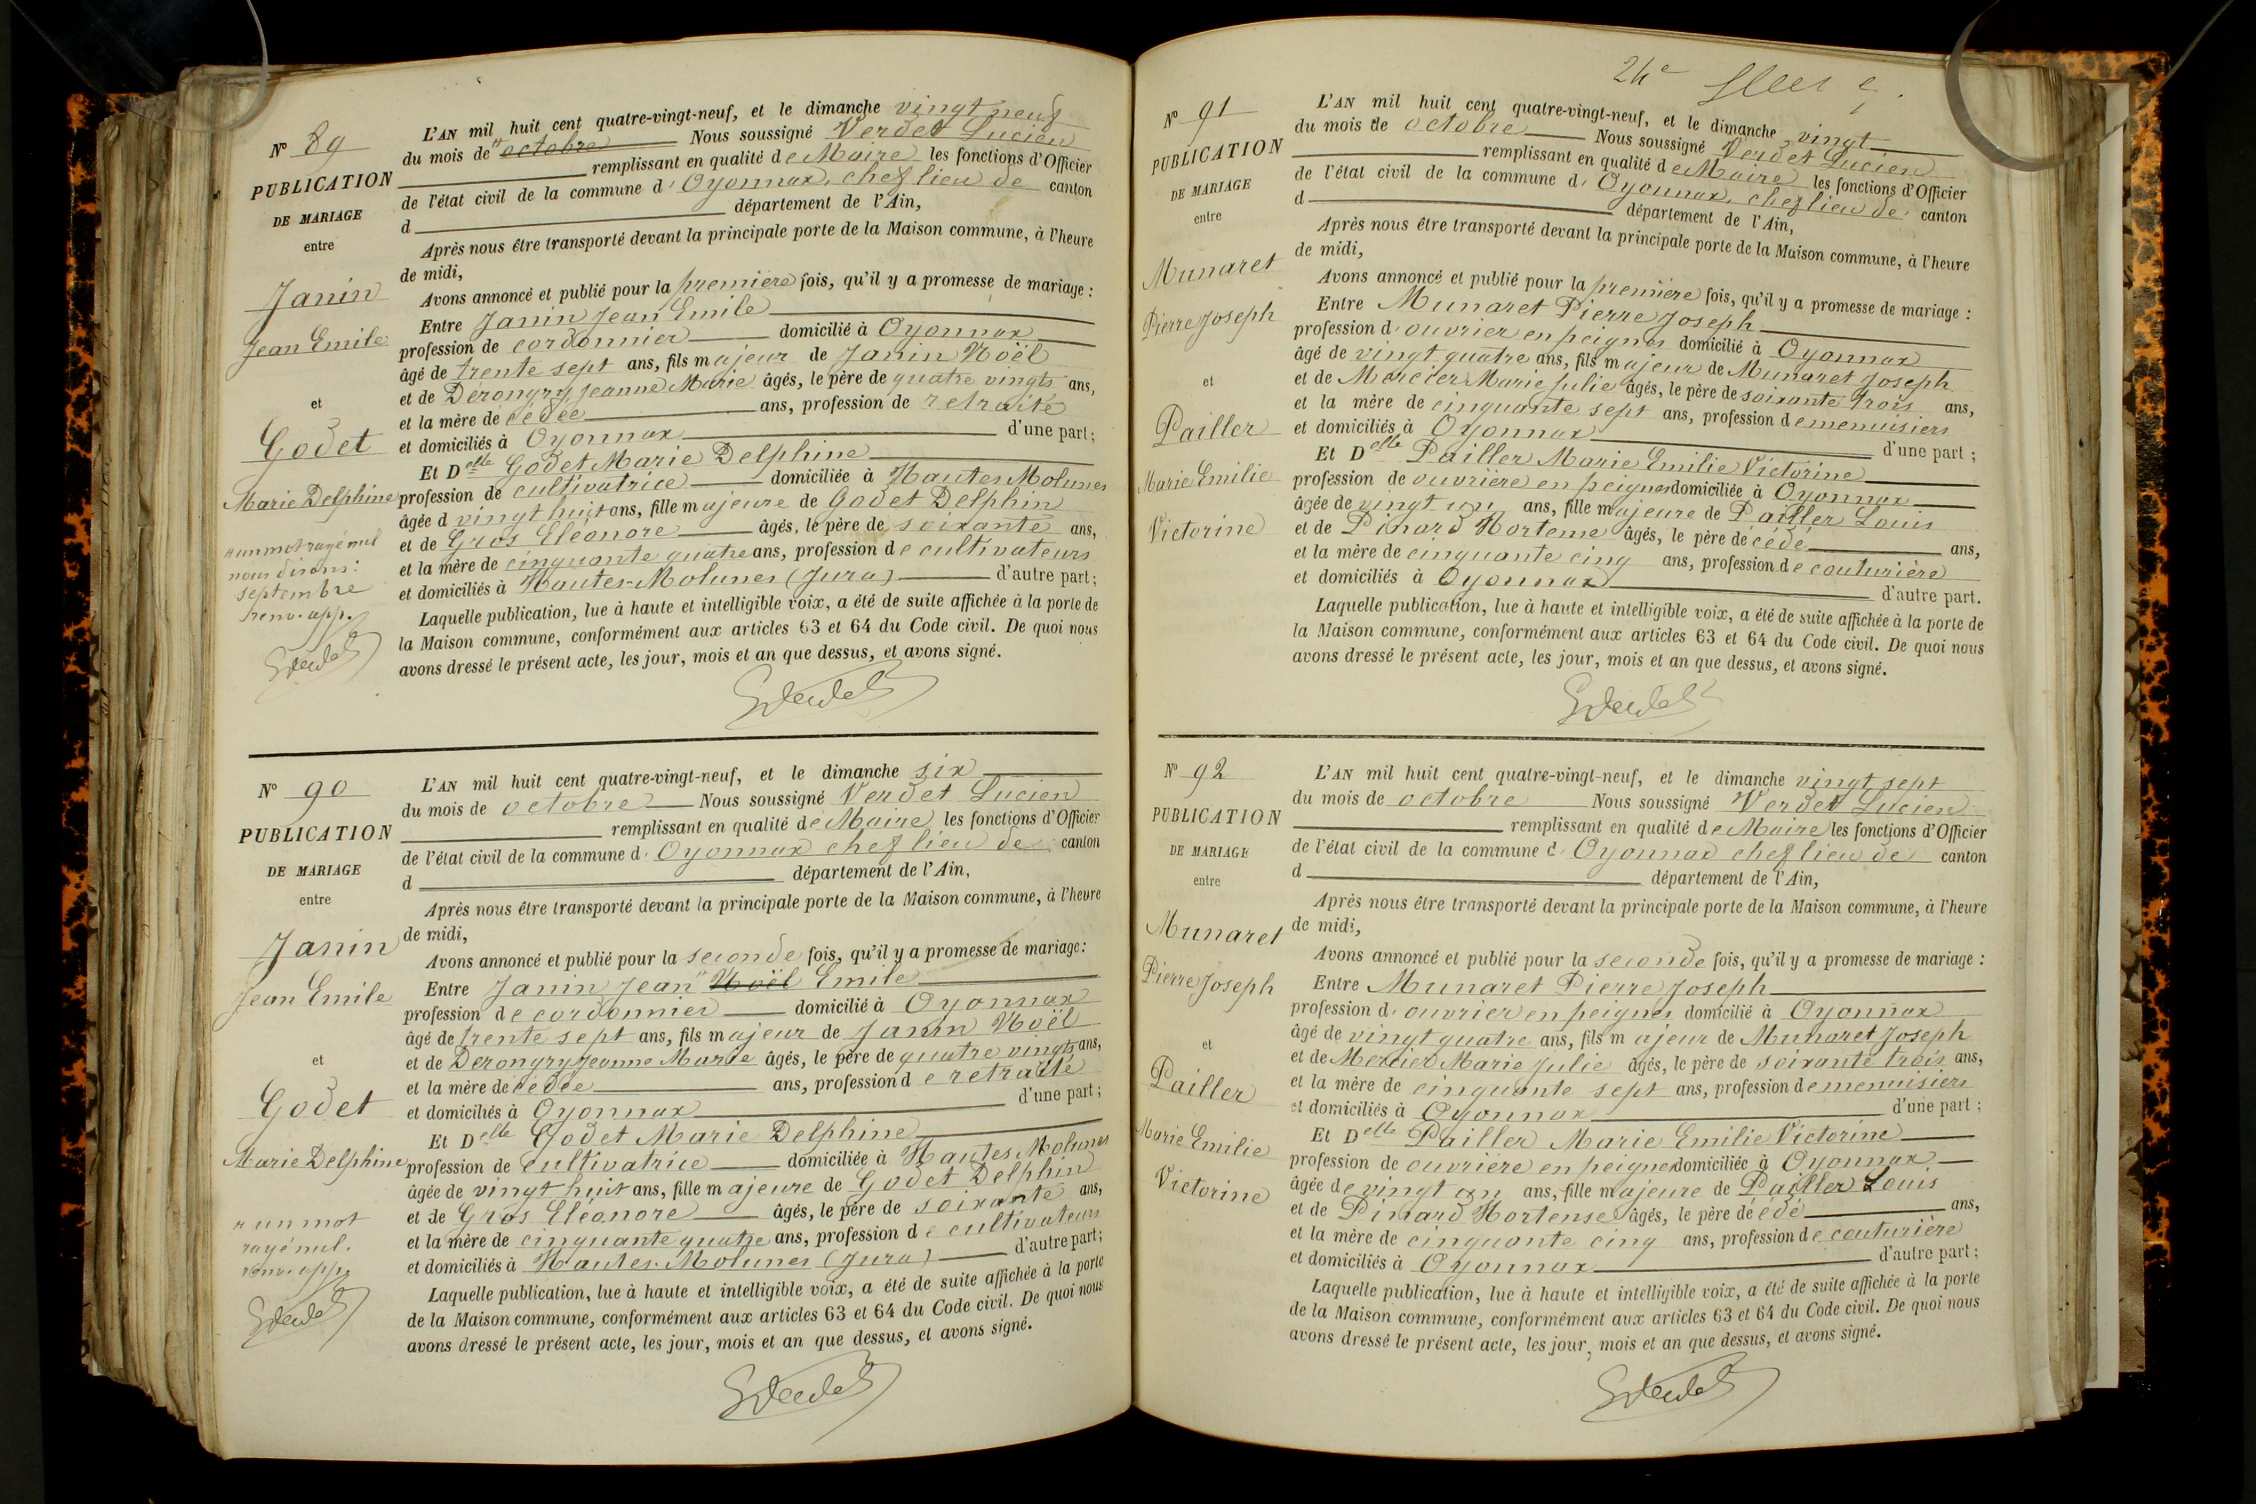 Nº 89
PUBLICATION
DE MARIAGE
entre
Janin
Jean Emile
et
Godet
Marie Delphine
" un mot rayé nul
nous disons :
septembre
renv. app.
L'AN mil huit cent quatre-vingt-neuf, et le dimanche vingt neuf
du mois de " octobre Nous soussigné Verdet Lucien
remplissant en qualité de Maire les fonctions d'Officier
de l'état civil de la commune d' Oyonnax, chef lieu de canton
d département de l'Ain,
Après nous être transporté devant la principale porte de la Maison commune, à l'heure
de midi,
Avons annoncé et publié pour la première fois, qu'il y a promesse de mariage :
Entre Janin Jean Emile
profession de cordonnier domicilié à Oyonnax
âgé de trente sept ans, fils majeur de Janin Noël
et de Dérongry Jeanne Marie âgés, le père de quatre vingts ans,
et la mère de cédée ans, profession de retraité
et domiciliés à Oyonnax d'une part ;
Et Delle Godet Marie Delphine
profession de cultivatrice domiciliée à Hautes Molunes
âgée d vingt huit ans, fille majeure de Godet Delphin
et de Gros Eléonore âgés, le père de soixante ans,
et la mère de cinquante quatre ans, profession de cultivateurs
et domiciliés à Hautes-Molunes (Jura) d'autre part ;
Laquelle publication, lue à haute et intelligible voix, a été de suite affichée à la porte de
la Maison commune, conformément aux articles 63 et 64 du Code civil. De quoi nous
avons dressé le présent acte, les jour, mois et an que dessus, et avons signé.
Nº 90
PUBLICATION
DE MARIAGE
entre
Janin
Jean Emile
et
Godet
Marie Delphine
" un mot
rayé nul.
renv. app.
L'AN mil huit cent quatre-vingt-neuf, et le dimanche six
du mois de octobre Nous soussigné Verdet Lucien
remplissant en qualité de Maire les fonctions d'Officier
de l'état civil de la commune d' Oyonnax chef lieu de canton
d département de l'Ain,
Après nous être transporté devant la principale porte de la Maison commune, à l'heure
de midi,
Avons annoncé et publié pour la seconde fois, qu'il y a promesse de mariage :
Entre Janin Jean " Noël Emile
profession de cordonnier domicilié à Oyonnax
âgé de trente sept ans, fils majeur de Janin Noël
et de Dérongry Jeanne Marie âgés, le père de quatre vingts ans,
et la mère de cédée ans, profession de retraité
et domiciliés à Oyonnax d'une part ;
Et Delle Godet Marie Delphine
profession de cultivatrice domiciliée à Hautes Molunes
âgée de vingt huit ans, fille majeure de Godet Delphin
et de Gros Eléonore âgés, le père de soixante ans,
et la mère de cinquante quatre ans, profession de cultivateurs
et domiciliés à Hautes-Molunes (Jura) d'autre part ;
Laquelle publication, lue à haute et intelligible voix, a été de suite affichée à la porte
de la Maison commune, conformément aux articles 63 et 64 du Code civil. De quoi nous
avons dressé le présent acte, les jour, mois et an que dessus, et avons signé.
24e
Nº 91
PUBLICATION
DE MARIAGE
entre
Munaret
Pierre Joseph
et
Pailler
Marie Emilie
Victorine
L'AN mil huit cent quatre-vingt-neuf, et le dimanche vingt
du mois de octobre Nous soussigné Verdet Lucien
remplissant en qualité de Maire les fonctions d'Officier
de l'état civil de la commune d' Oyonnax, chef lieu de canton
d département de l'Ain,
Après nous être transporté devant la principale porte de la Maison commune, à l'heure
de midi,
Avons annoncé et publié pour la première fois, qu'il y a promesse de mariage :
Entre Munaret Pierre Joseph
profession d' ouvrier en peignes domicilié à Oyonnax
âgé de vingt quatre ans, fils majeur de Munaret Joseph
et de Mercier Marie Julie âgés, le père de soixante trois ans,
et la mère de cinquante sept ans, profession de menuisiers
et domiciliés à Oyonnax d'une part ;
Et Delle Pailler Marie Emilie Victorine
profession de ouvrière en peignes domiciliée à Oyonnax
âgée de vingt un ans, fille majeure de Pailler Louis
et de Pinard Hortense âgés, le père de cédé ans,
et la mère de cinquante cinq ans, profession de couturière
et domiciliés à Oyonnax d'autre part.
Laquelle publication, lue à haute et intelligible voix, a été de suite affichée à la porte de
la Maison commune, conformément aux articles 63 et 64 du Code civil. De quoi nous
avons dressé le présent acte, les jour, mois et an que dessus, et avons signé.
Nº 92
PUBLICATION
DE MARIAGE
entre
Munaret
Pierre Joseph
et
Pailler
Marie Emilie
Victorine
L'AN mil huit cent quatre-vingt-neuf, et le dimanche vingt sept
du mois de octobre Nous soussigné Verdet Lucien
remplissant en qualité de Maire les fonctions d'Officier
de l'état civil de la commune d' Oyonnax chef lieu de canton
d département de l'Ain,
Après nous être transporté devant la principale porte de la Maison commune, à l'heure
de midi,
Avons annoncé et publié pour la seconde fois, qu'il y a promesse de mariage :
Entre Munaret Pierre Joseph
profession d' ouvrier en peignes domicilié à Oyonnax
âgé de vingt quatre ans, fils majeur de Munaret Joseph
et de Mercier Marie Julie âgés, le père de soixante trois ans,
et la mère de cinquante sept ans, profession de menuisiers
et domiciliés à Oyonnax d'une part ;
Et Delle Pailler Marie Emilie Victorine
profession de ouvrière en peignes domiciliée à Oyonnax
âgée de vingt un ans, fille majeure de Pailler Louis
et de Pinard Hortense âgés, le père décédé ans,
et la mère de cinquante cinq ans, profession de couturière
et domiciliés à Oyonnax d'autre part ;
Laquelle publication, lue à haute et intelligible voix, a été de suite affichée à la porte
de la Maison commune, conformément aux articles 63 et 64 du Code civil. De quoi nous
avons dressé le présent acte, les jour, mois et an que dessus, et avons signé.